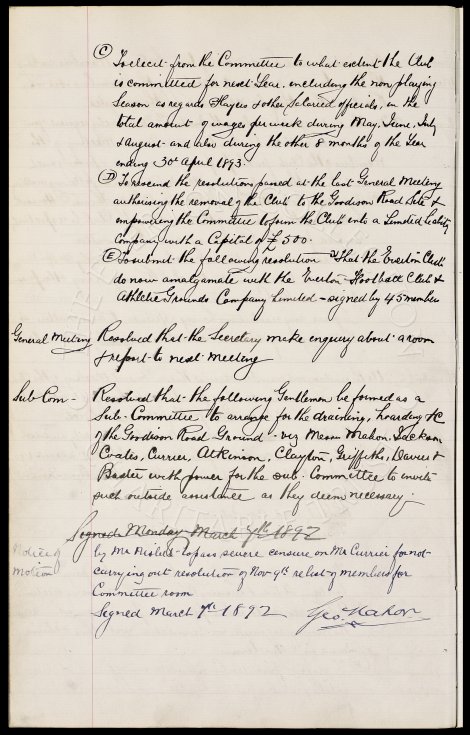 (C) To elicit from the Committee to what extent the Club
is committed for next Year, including the non playing
Season as regards Players & other Salaried Officials, in the
total amount of wages per week during May, June, July
& August and also during the other 8 months of the Year
ending 30th April 1893
(D) To rescind the resolutions passed at the last General Meeting
authorising the removal of the Club to the Goodison Road Site &
empowering the Committee to form the Club into a Limited liability
Company with a Capital of £500.
(E) To submit the following resolution "That the Everton Club
do now amalgamate with the Everton Football Club &
Athletic Grounds Company Limited - signed by 45 members
General Meeting Resolved that the Secretary make enquiry about a room
& report to next Meeting
Sub-Com - Resolved that the following Gentlemen be formed as a
Sub-Committee to arrange for the draining, hoarding &c
of the Goodison Road Ground - viz Messrs Mahon, Jackson
Coates, Currier, Atkinson, Clayton, Griffiths, Davies &
Baxter with power for the sub-Committee to invite
such outside assistance as they deem necessary.
Signed Monday March 7th 1892
Notice of Motion by Mr Nisbet - to pass severe censure on Mr Currier for not
carrying out resolution of Nov 9th re list of members for
Committee room
Signed March 7th 1892 Geo. Mahon